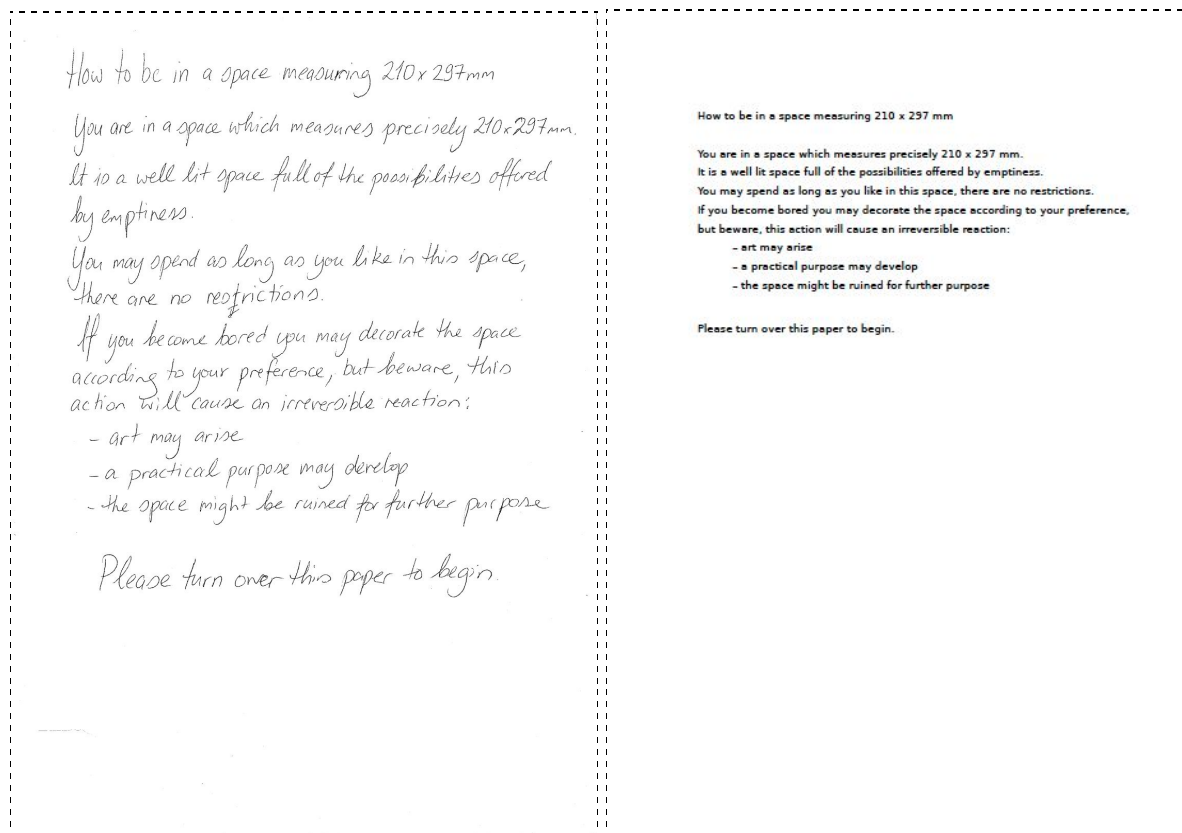 How to be in a space measuring 210 x 297mm
You are in a space which measures precisely 210x297mm.
It is a well lit space full of the possibilities offered
by emptiness.
You may spend as long as you like in this space,
there are no restrictions.
If you become bored you may decorate the space
according to your preference, but beware, this
action will cause an irreversible reaction:
- art may arise
- a practical purpose may develop
- the space might be ruined for further purpose
Please turn over this paper to begin.
How to be in a space measuring 210 x 297 mm
You are in a space which measures precisely 210 x 297 mm.
It is a well lit space full of the possibilities offered by emptiness.
You may spend as long as you like in this space, there are no restrictions.
If you become bored you may decorate the space according to your preference,
but beware, this action will cause an irreversible reaction:
– art may arise
– a practical purpose may develop
– the space might be ruined for further purpose
Please turn over this paper to begin.